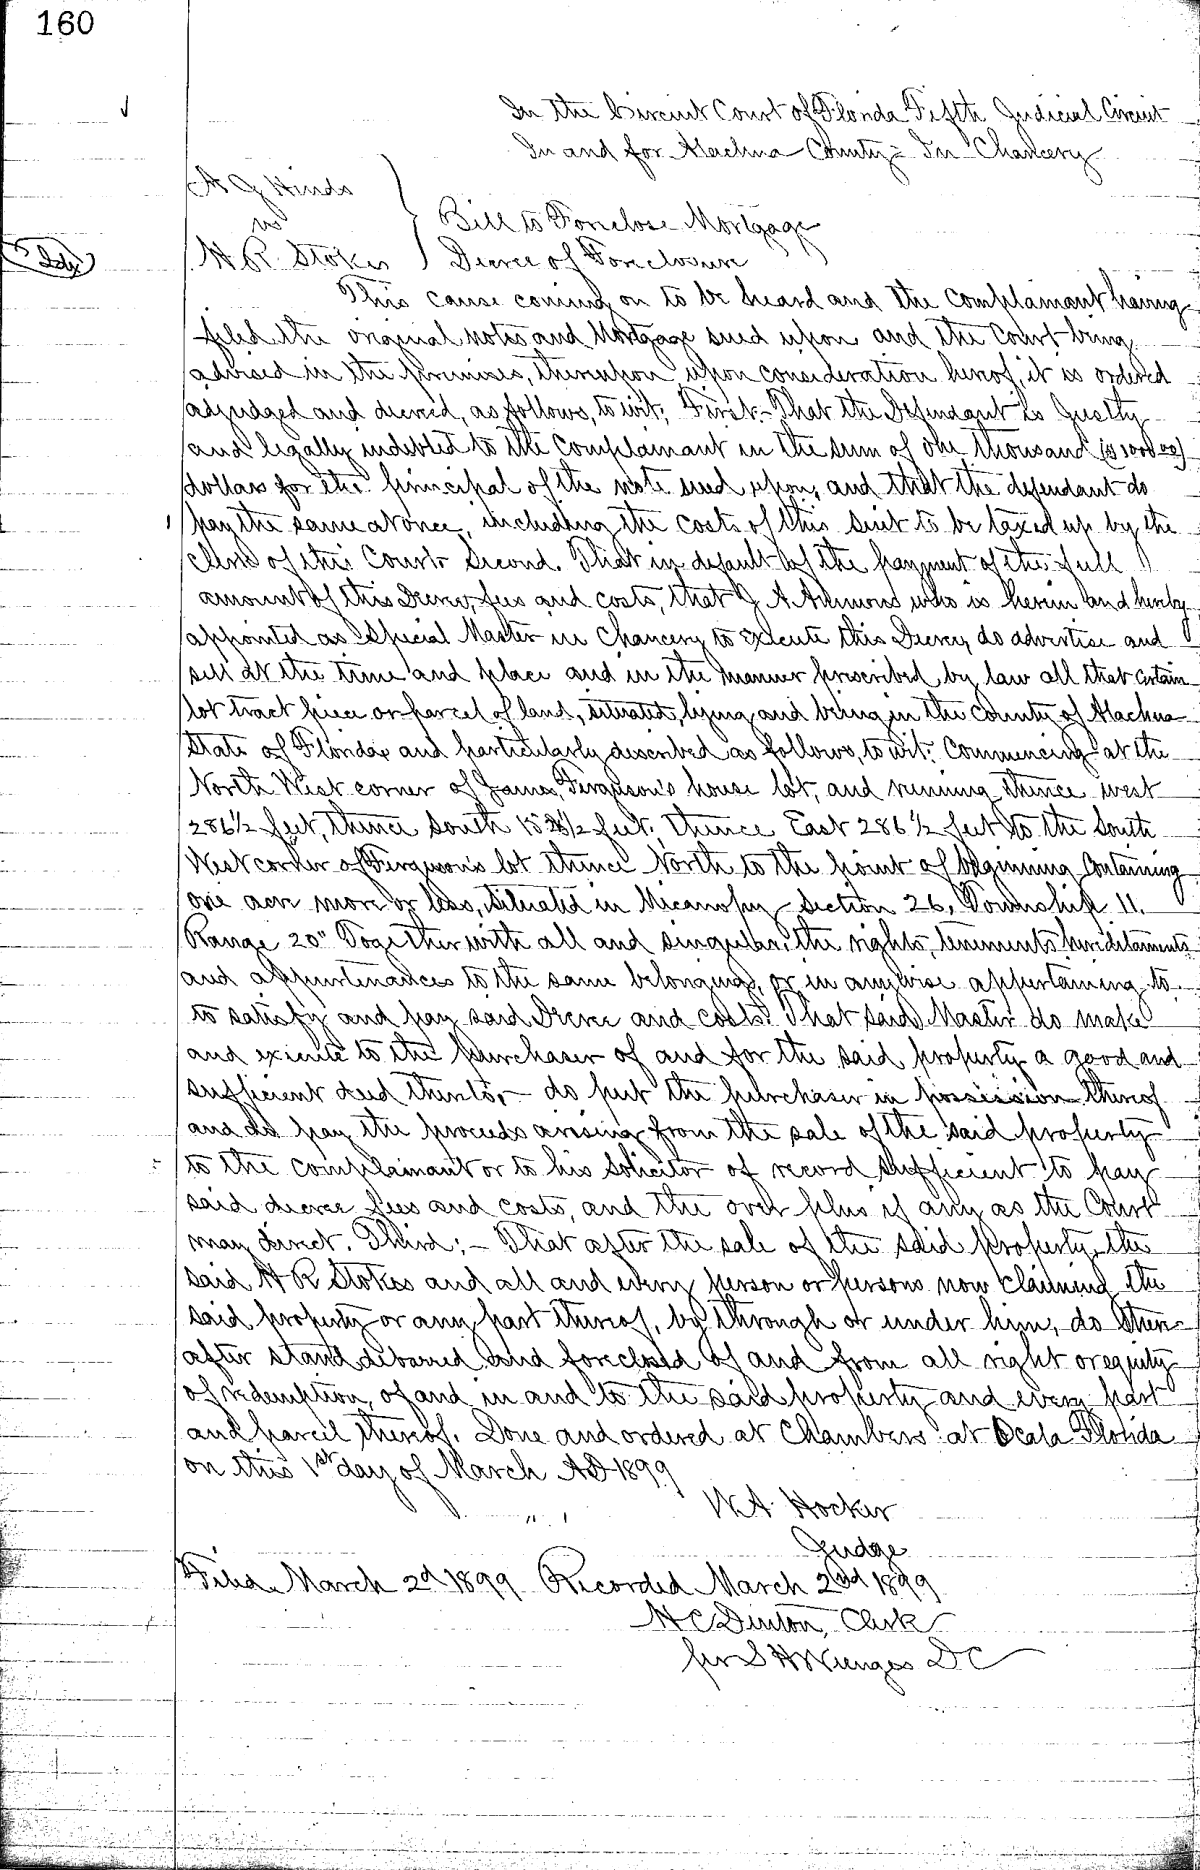 160
In the Circuit Court of Florida Fifth Judicial Circuit
In and for Alachua County - In Chancery
A G Hinds
vs
H. R. Stokes
Bill to Foreclose Mortgage
Decree of Foreclosure
This cause coming on to be heard and the complainant having
filed the original notes and Mortgage sued upon and the Court being
advised in the premises, thereupon upon consideration hereof, it is ordered
adjudged and decreed, as follows, to wit; First - That the Defendant is justly
and legally indebted to the complainant in the sum of one thousand ($1000.00)
dollars for the principal of the note sued upon, and that the defendant do
pay the same at once, including the costs of this suit to be taxed up by the
Clerk of this Court Second. That in default of the payment of the full
amount of this Decree, fees and costs, that J A Ammons who is herein and hereby
appointed as Special Master in Chancery to execute this Decree, do advertise and
sell at the time and place and in the manner prescribed by law all that certain
lot tract piece or parcel of land, situated, lying and being in the County of Alachua
State of Florida and particularly described as follows, to wit: Commencing at the
North West corner of James Ferguson's house lot, and running thence west
286 1/2 feet, thence south feet; thence East 286 1/2 feet to the South
West corner of Ferguson's lot thence North to the point of beginning containing
one acre more or less, situated in Micanopy Section 26, Township 11.
Range 20" Together with all and singular, the rights, tenements hereditaments
and appurtenances to the same belonging, or in anywise appertaining to
to satisfy and pay said Decree and costs. That said Master do make
and execute to the purchaser of and for the said property a good and
sufficient deed thereto, - do put the purchaser in possession thereof
and do pay the proceeds arising from the sale of the said property
to the complainant or to his solicitor of record sufficient to pay
said decree fees and costs, and the over plus if any as the Court
may direct. Third; - That after the sale of the said property, the
said H R Stokes and all and every person or persons now claiming the
said property or any part thereof, by through or under him, do there-
after stand debarred and foreclosed of and from all right or equity
of redemption, of and in and to the said property and every part
and parcel thereof. Done and ordered at Chambers at Ocala Florida
on this 1st day of March AD 1899
W A Hocker
Judge
Filed March 2d 1899 Recorded March 2nd 1899
H C Denton, Clerk
per S H Wienges DC